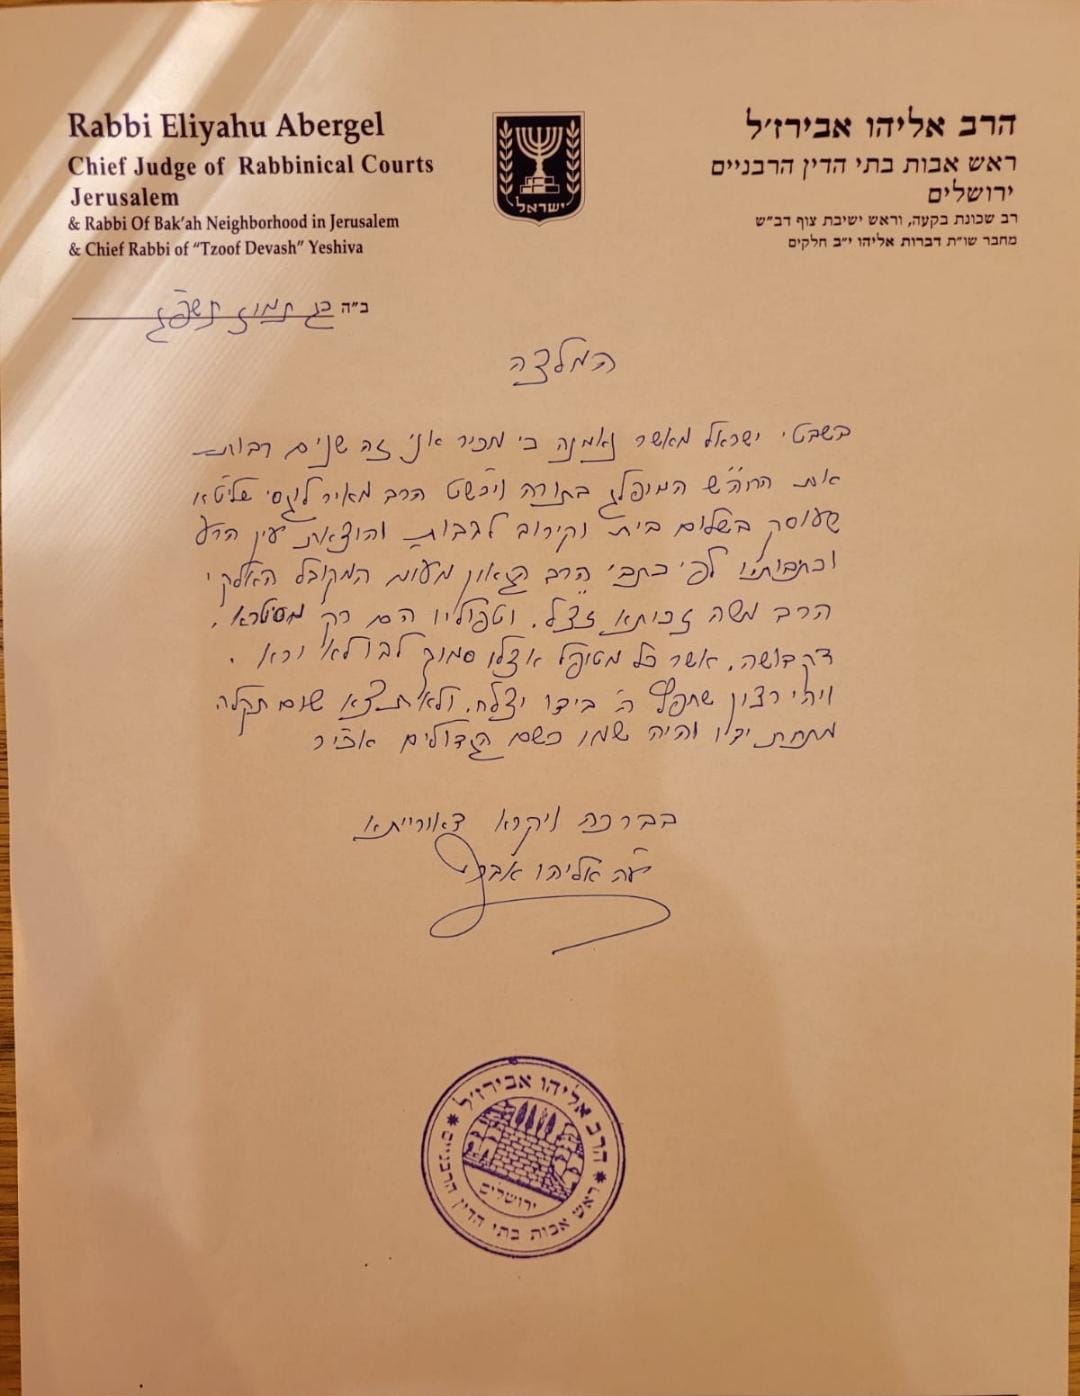 Rabbi Eliyahu Abergel
Chief Judge of Rabbinical Courts
Jerusalem
& Rabbi Of Bak'ah Neighborhood in Jerusalem
& Chief Rabbi of "Tzoof Devash" Yeshiva
ישראל
הרב אליהו אבירז׳ל
ראש אבות בתי הדין הרבניים
ירושלים
רב שכונת בקעה, וראש ישיבת צוף דב״ש
מחבר שו״ת דברות אליהו י״ב חלקים
ב״ה כג תמוז תשפ״ג
המלצה
בשבטי ישראל מאשר נאמנה כי מכיר אני זה שנים רבות
את הרוה״ש המופלג בתורה ויכשט הרב מאיר לוגסי שליט״א
שעוסק בשלום בית וקירוב לבבות והוצאת עין הרע
וכתבותיו לפי כתבי הרב הגאון מעוזנו המקובל האלקי
הרב משה זכותא זצ״ל. וטפוליו הם רק מסיטרא
דקדושה. אשר כל מטופל אצלו סמוך לבו לא ירא.
ויהי רצון שחפץ ה׳ בידו יצלח. ולא תצא שום תקלה
מתחת ידיו והיה שמו כשם הגדולים אכי״ר
בברכה ויקרא דאורייתא
ע״ה אליהו
הרב אליהו אבירז׳ל
ראש אבות בתי הדין הרבניים
ירושלים